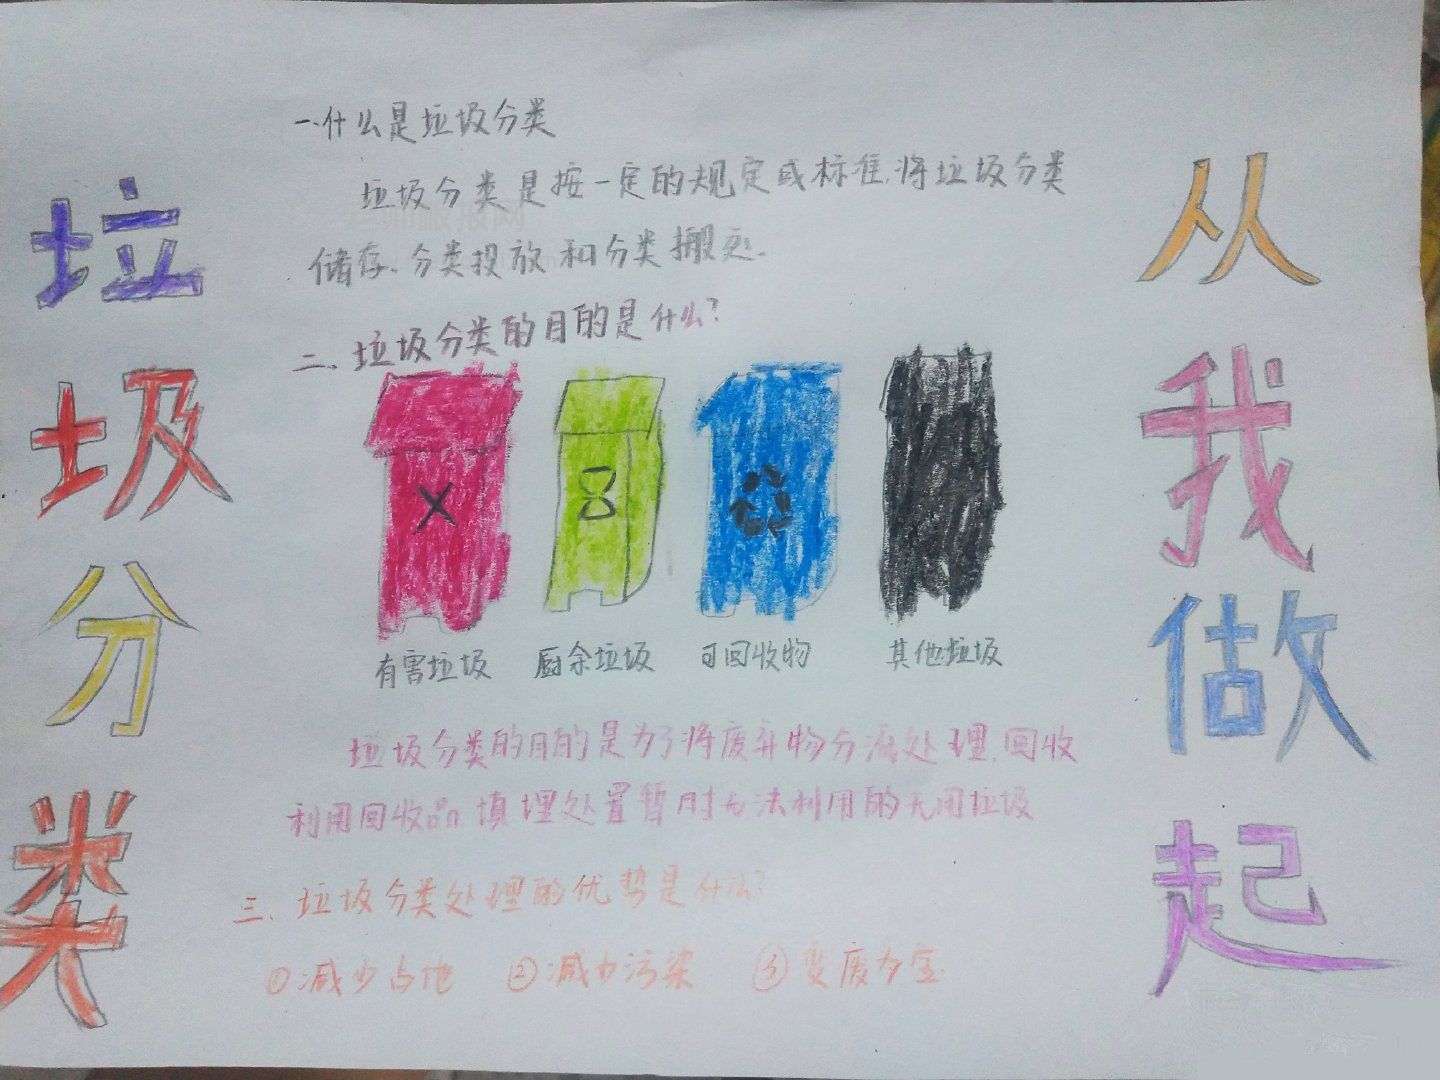 垃圾分类
从我做起
一.什么是垃圾分类
垃圾分类是按一定的规定或标准,将垃圾分类
储存、分类投放和分类搬运.
二、垃圾分类的目的是什么?
有害垃圾 厨余垃圾 可回收物 其他垃圾
垃圾分类的目的是为了将废弃物分流处理,回收
利用回收品 填埋处置暂时无法利用的无用垃圾
三、垃圾分类处理的优势是什么?
①减少占地 ②减少污染 ③变废为宝